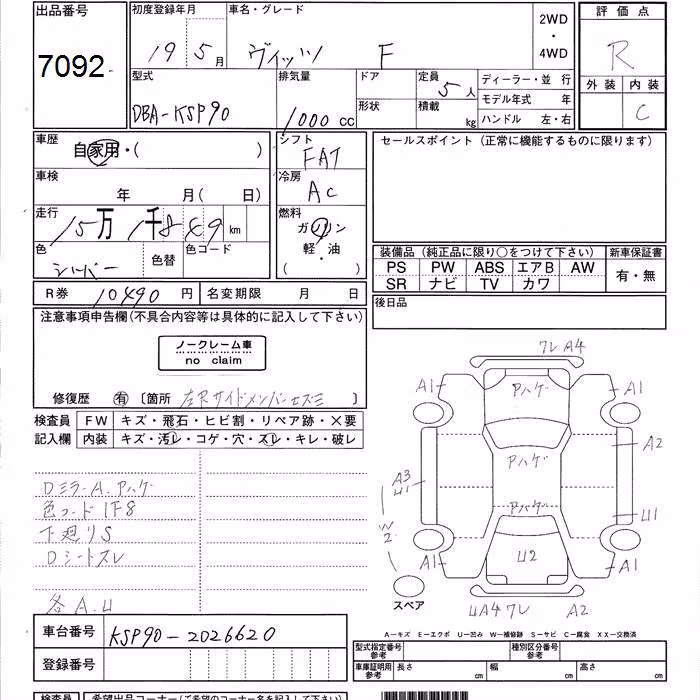 出品番号 初度登録年月 車名・グレード 2WD ・ 4WD 評価点
7092 19 5月 ヴィッツ F R
型式 排気量 ドア 定員 5人 ディーラー・並 行 外装 内装
DBA-KSP90 1000cc 形状 積載 kg モデル年式 年 C
ハンドル 左・右
車歴 自家用・( ) シフト FAT セールスポイント (正常に機能するものに限ります)
車検 年 月(日) 冷房 AC
走行 15万1千849km 燃料 ガソリン・軽・油 ( )
色 シルバー 色替 色コード
装備品 (純正品に限り○をつけて下さい) 新車保証書
PS PW ABS エアB AW 有・無
SR ナビ TV カワ
R券 10490円 名変期限 月 日 後日品
注意事項申告欄(不具合内容等は具体的に記入して下さい)
ノークレーム車
no claim
修復歴 有 〔箇所 左Rサイドメンバーヒズミ 〕
検査員 FW キズ・飛石・ヒビ割・リペア跡・×要
記入欄 内装 キズ・汚レ・コゲ・穴・スレ・キレ・破レ
DミラーA、アハゲ
色コード1F8
下廻りS
Dシートスレ
各A.U
ワレA4
A1 アハゲ A1
A2
アハゲ
A3
U1
アハゲ U1
W2
A1 U2 A1
スペア UA4ワレ A2
A−キズ E−エクボ U−凹み W−補修跡 S−サビ C−腐食 XX−交換済
車台番号 KSP90-2026620
登録番号
型式指定番号 参考 種別区分番号 参考
車庫証明用 参考 長さ cm 幅 cm 高さ cm
検査員 希望出品コーナー(ご希望のコーナー名を記入下さい)